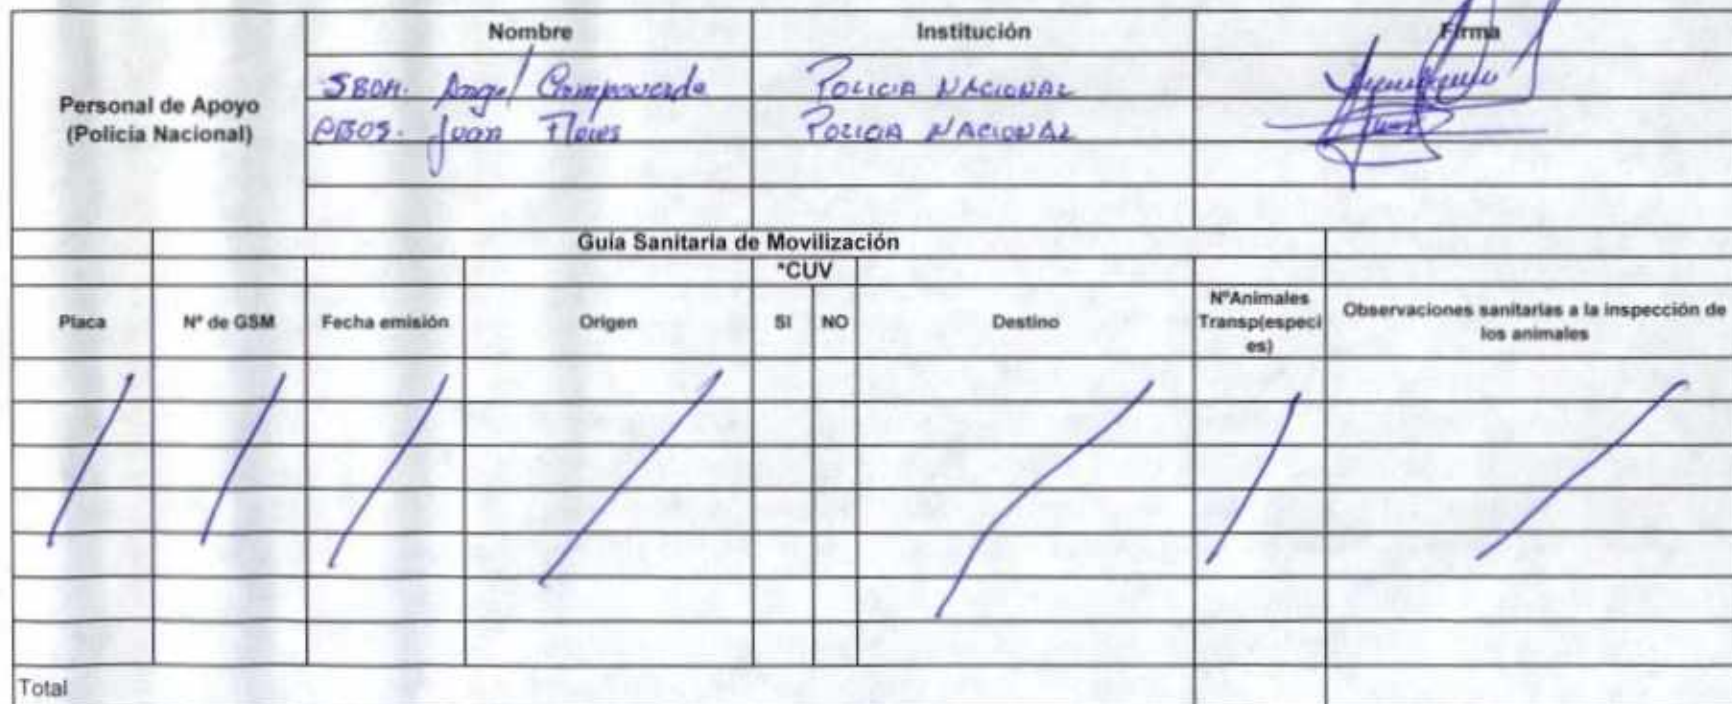 Nombre Institución Firma
Personal de Apoyo
(Policía Nacional)
SBOM. Angel Campoverde POLICIA NACIONAL
CBOS. Juan Flores POLICIA NACIONAL
Guía Sanitaria de Movilización
*CUV
Placa Nº de GSM Fecha emisión Origen SI NO Destino NºAnimales Transp(especi es) Observaciones sanitarias a la inspección de los animales
Total